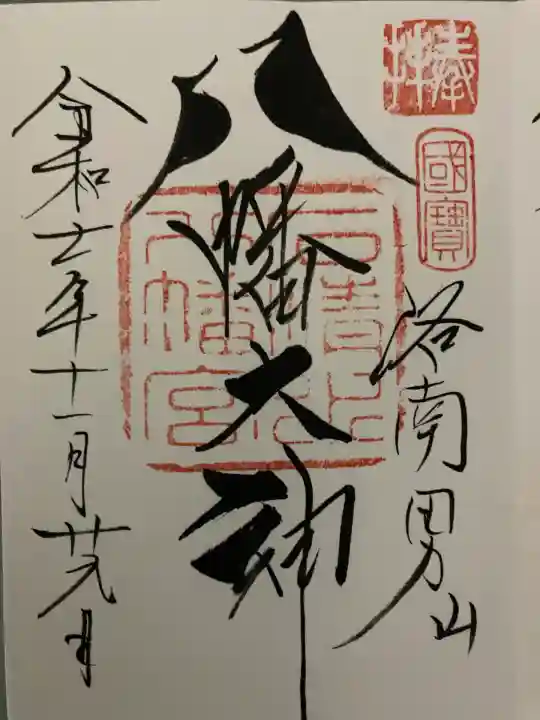 奉拝
國寶
洛南男山
八幡大神
石清水
八幡宮
令和七年十一月廿九日